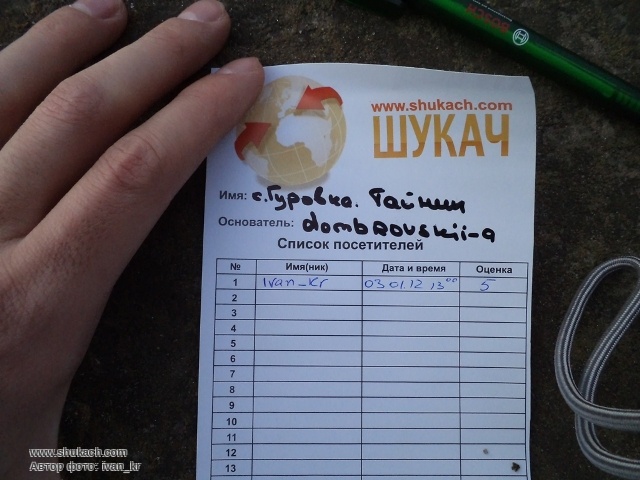 BOSCH
www.shukach.com
ШУКАЧ
Имя: с.Гуровка. Тайник
Основатель: dombrovskii-a
Список посетителей
№ Имя(ник) Дата и время Оценка
1 Ivan_kr 03 01.12 13⁰⁰ 5
2
3
4
5
6
7
8
9
10
11
12
13
www.shukach.com
Автор фото: ivan_kr